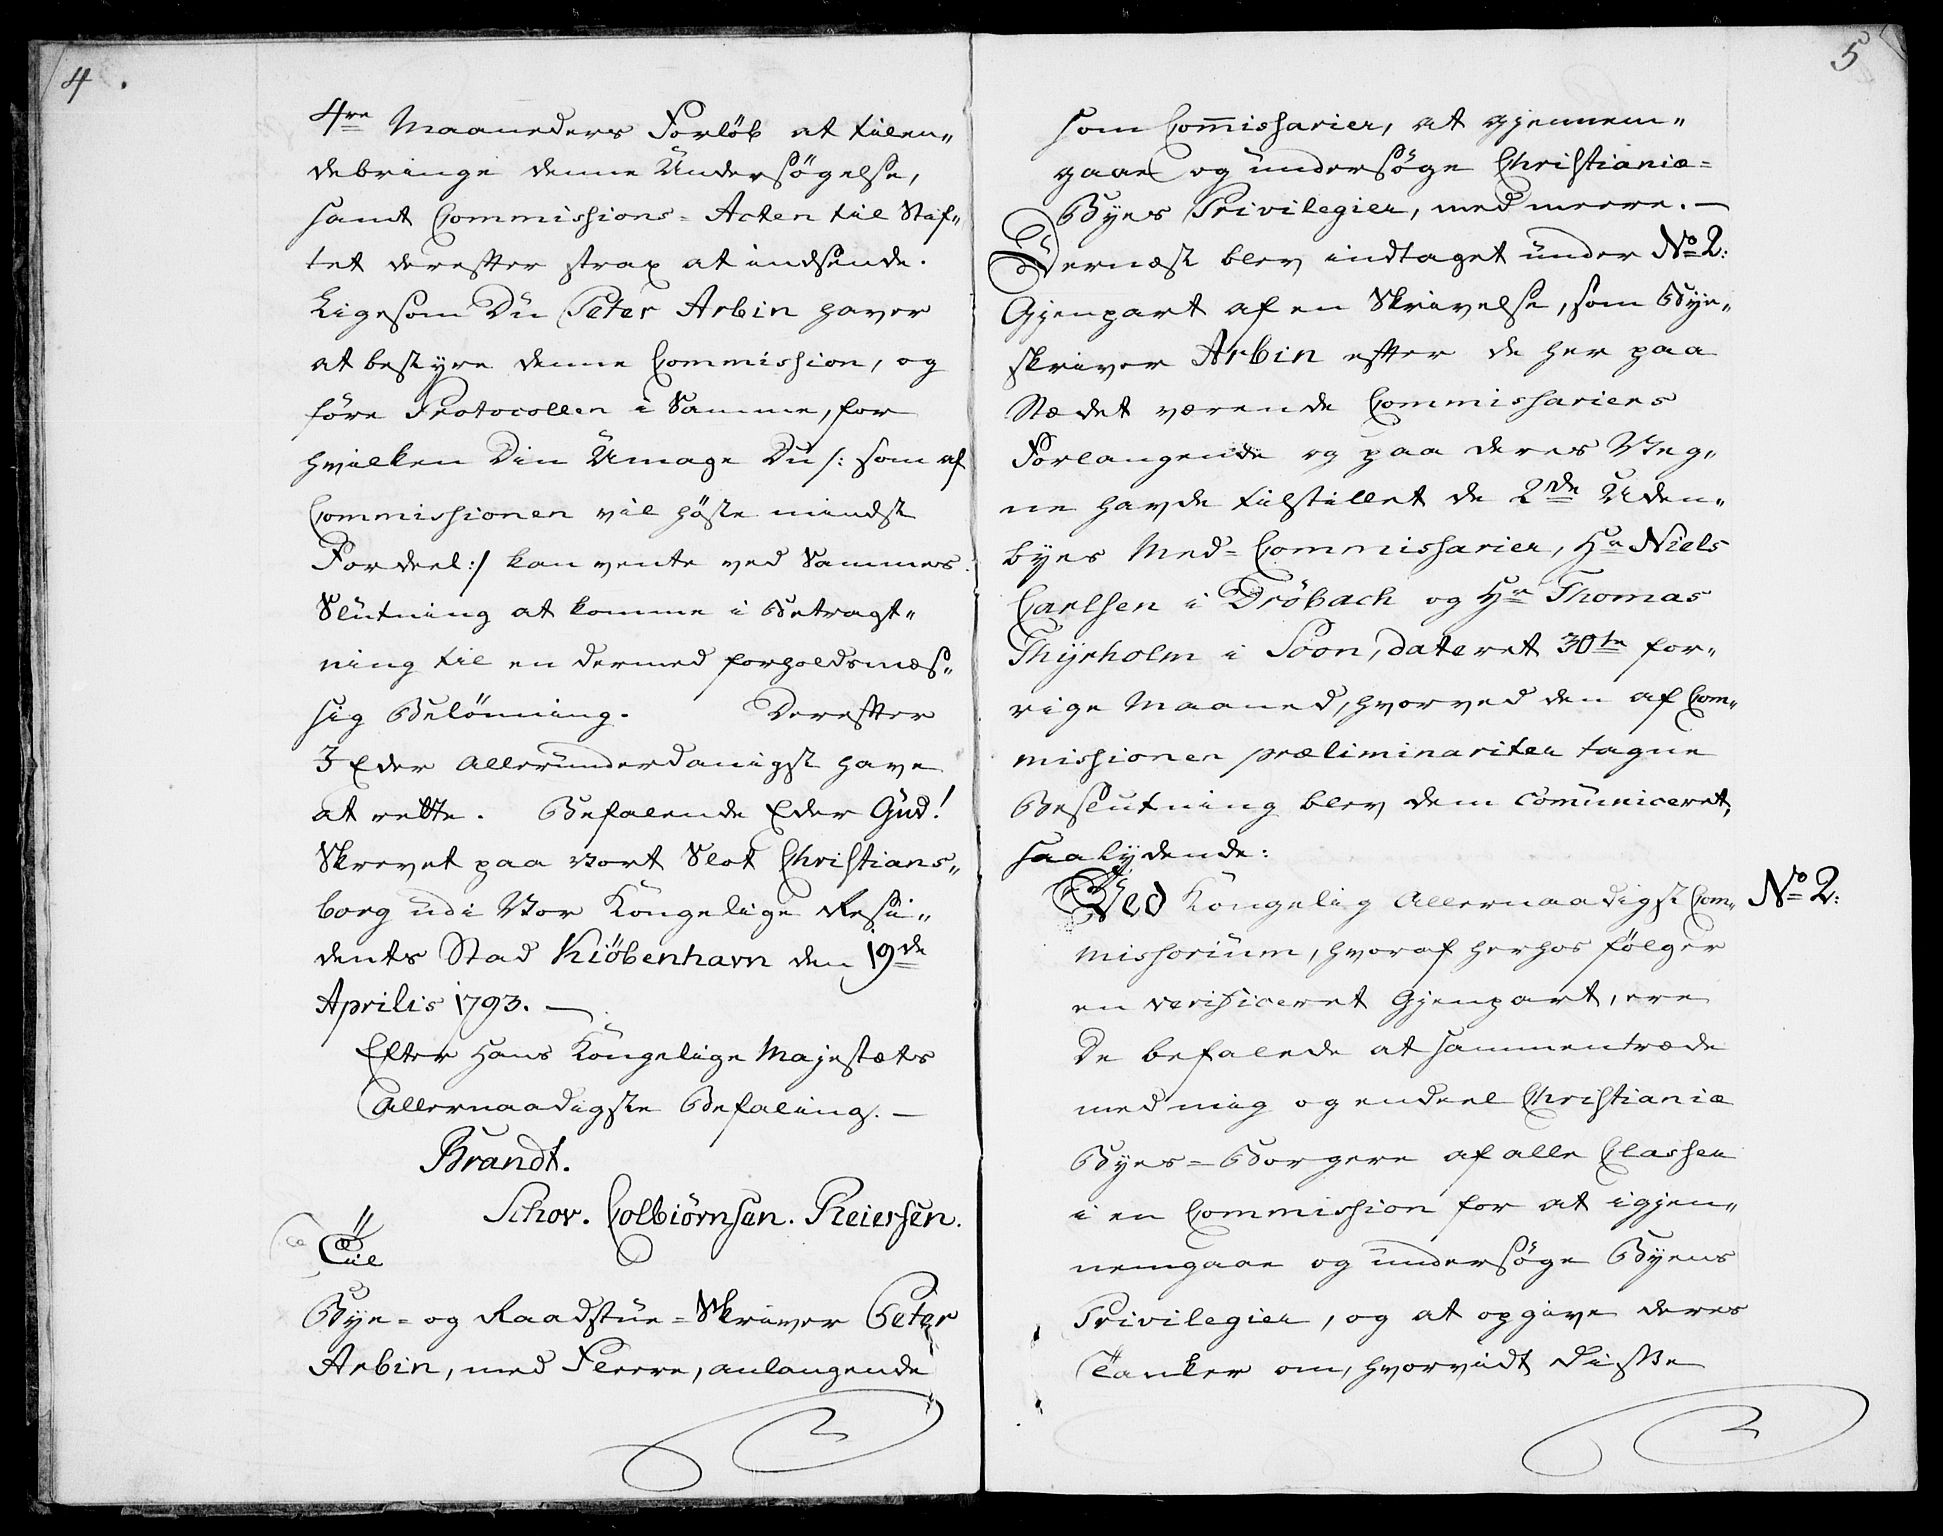 4
4re Maaneders Forløb at tilen„
debringe denne Undersøgelse,
samt Commissions-Acten til Stif„
tet derefter strax at indsende.
Ligesom Du Peter Arbin haver
at bestyre denne Commission, og
føre Protocollen i Samme, for
hvilken Din Umage Du /: som af
Commissionen vil høste mindst
Fordeel :/ kan vente ved Sammes
Slutning at komme i Betragt„
ning til en dermed forholdsmæs„
sig Belønning. Derefter
I Eder allerunderdanigst have
at rette. Befalende Eder Gud!
Skrevet paa vort Slot Christians„
borg udi Vor Kongelige Resi„
dents Stad Kiöbenhavn den 19de
Aprilis 1793. —
Efter Hans Kongelige Majestæts
Allernaadigste Befaling. —
Brandt.
Schow. Colbiørnsen. Reiersen.
Til
Bye- og Raadstue-Skriver Peter
Arbin, med Fleere, anlangende
5
som Com̅issarier, at gjennem„
gaae og undersøge Christianiæ-
Byes Privilegier, med meere. —
Dernæst blev indtaget under No 2:
Gjenpart af en Skrivelse, som Bye„
skriver Arbin efter de her paa
Stædet værende Commissariers
Forlangende og paa deres Veg„
ne havde tilstillet de 2de Uden„
byes Med-Commissarier, Hr Niels
Carlsen i Dröbach og Hr Thomas
Thyrholm i Soon, dateret 30te for„
rige Maaned, hvorved den af Com„
missionen præliminariter tagne
Beslutning blev dem com̅uniceret,
saa lydende:
Ved Kongelig Allernaadigst Com„ No 2:
missorium, hvoraf herhos følger
en verificeret Gjenpart, ere
De befalede at sammentræde
med mig og endeel Christianiæ
Byes-Borgere af alle Classer
i en Commission for at igjen„
nemgaae og undersøge Byens
Privilegier, og at opgive deres
Tanker om, hvorvidt disse